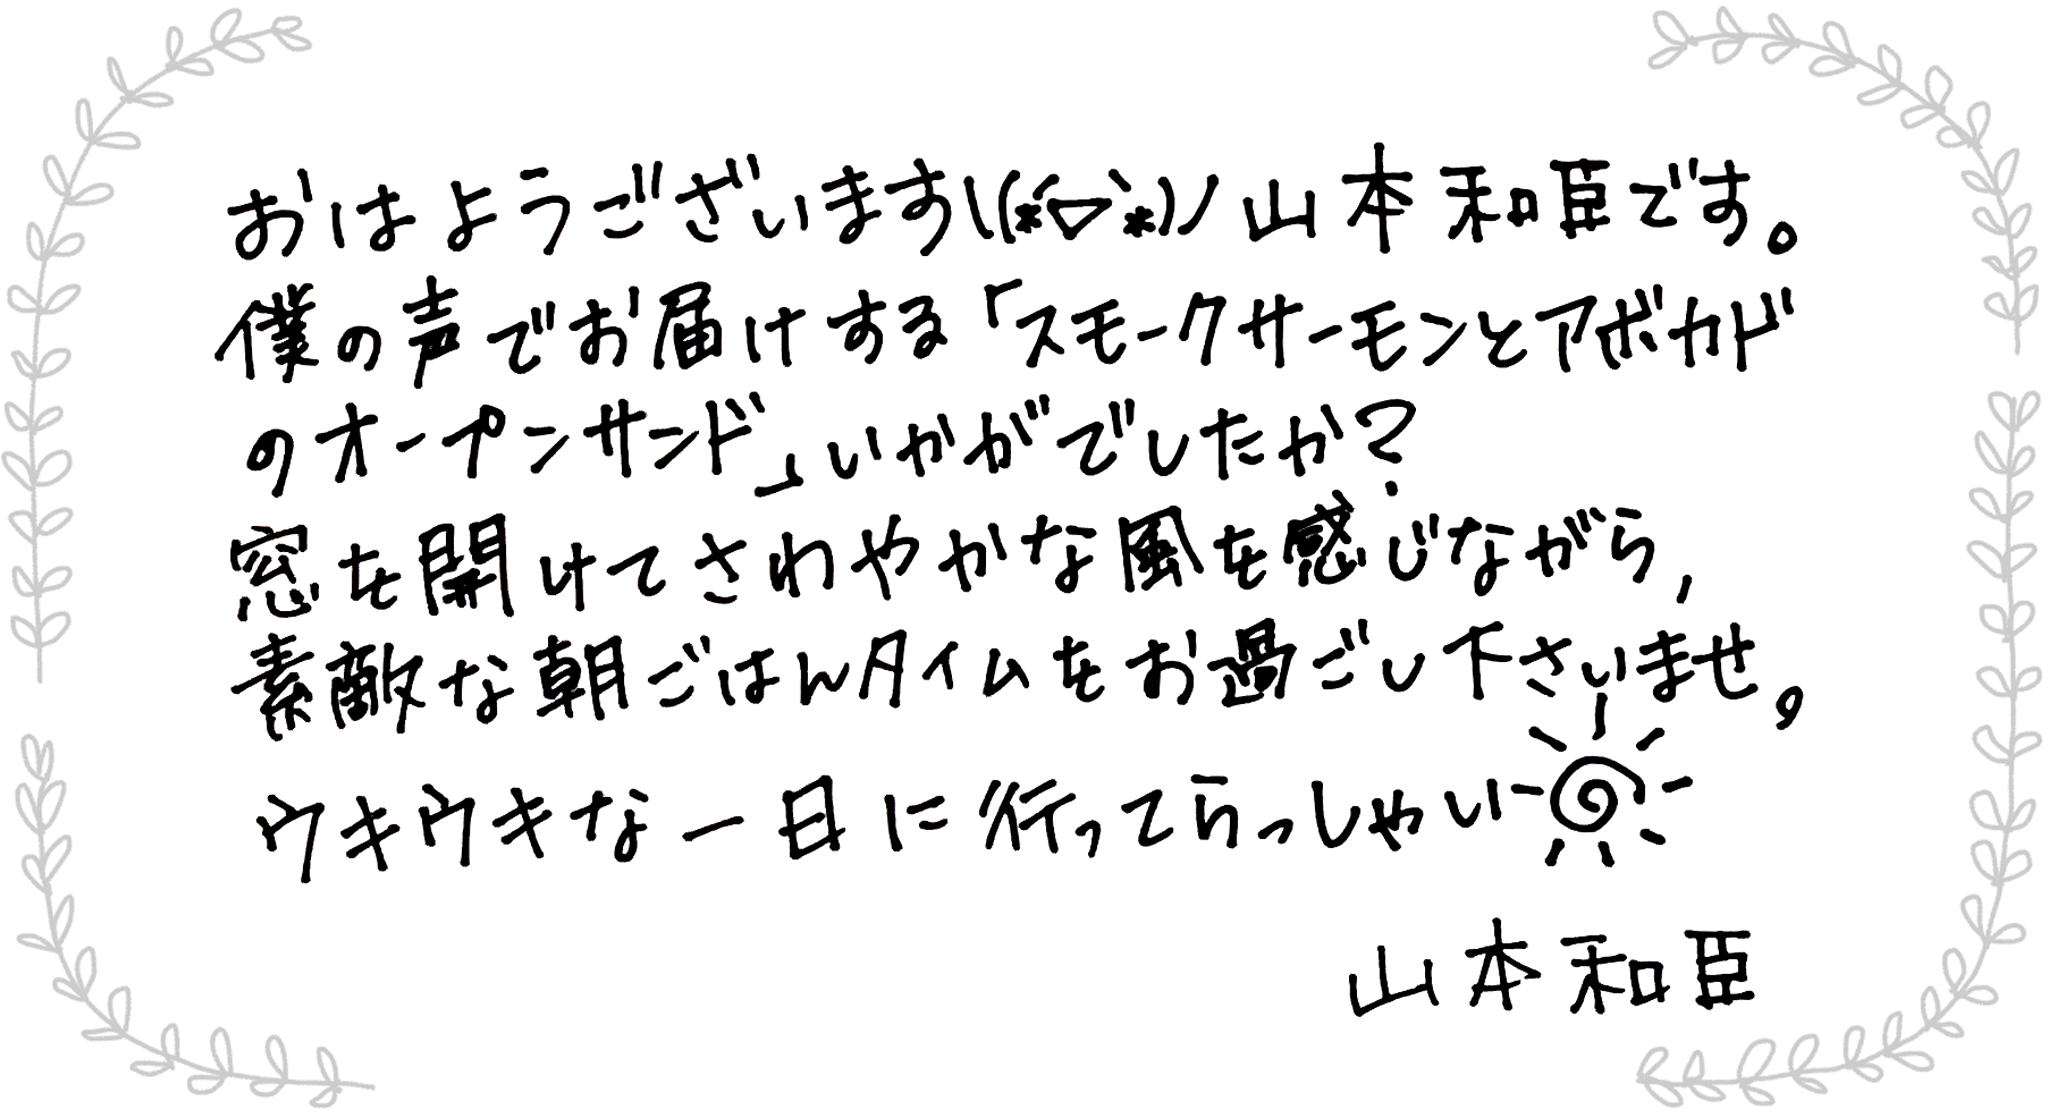 おはようございます\(*´▽`*)ノ 山本和臣です。
僕の声でお届けする「スモークサーモンとアボカド
のオープンサンド」いかがでしたか?
窓を開けてさわやかな風を感じながら,
素敵な朝ごはんタイムをお過ごし下さいませ。
ウキウキな一日に行ってらっしゃい
山本和臣